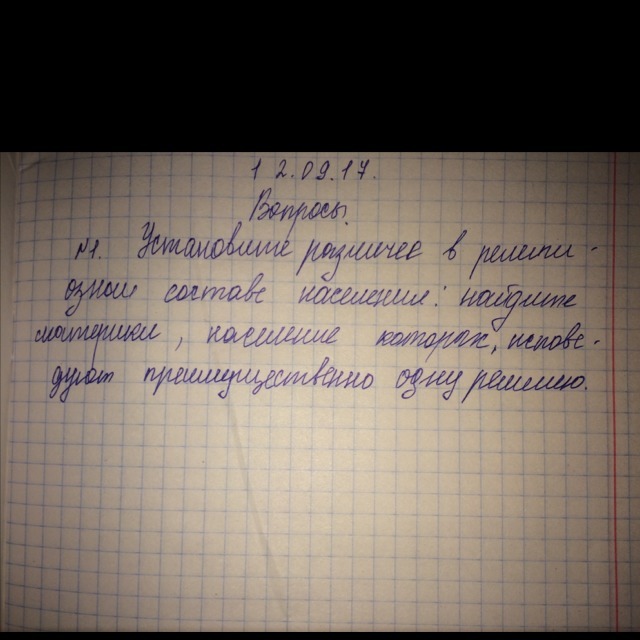 12.09.17.
Вопросы.
№1. Установите различее в религи-
озном составе населения: найдите
материки, население которых, испове-
дуют преимущественно одну религию.